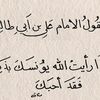 يقول الامام علي بن أبي طال
ا رأيت الله يؤنسك بذ
فقد أحبك